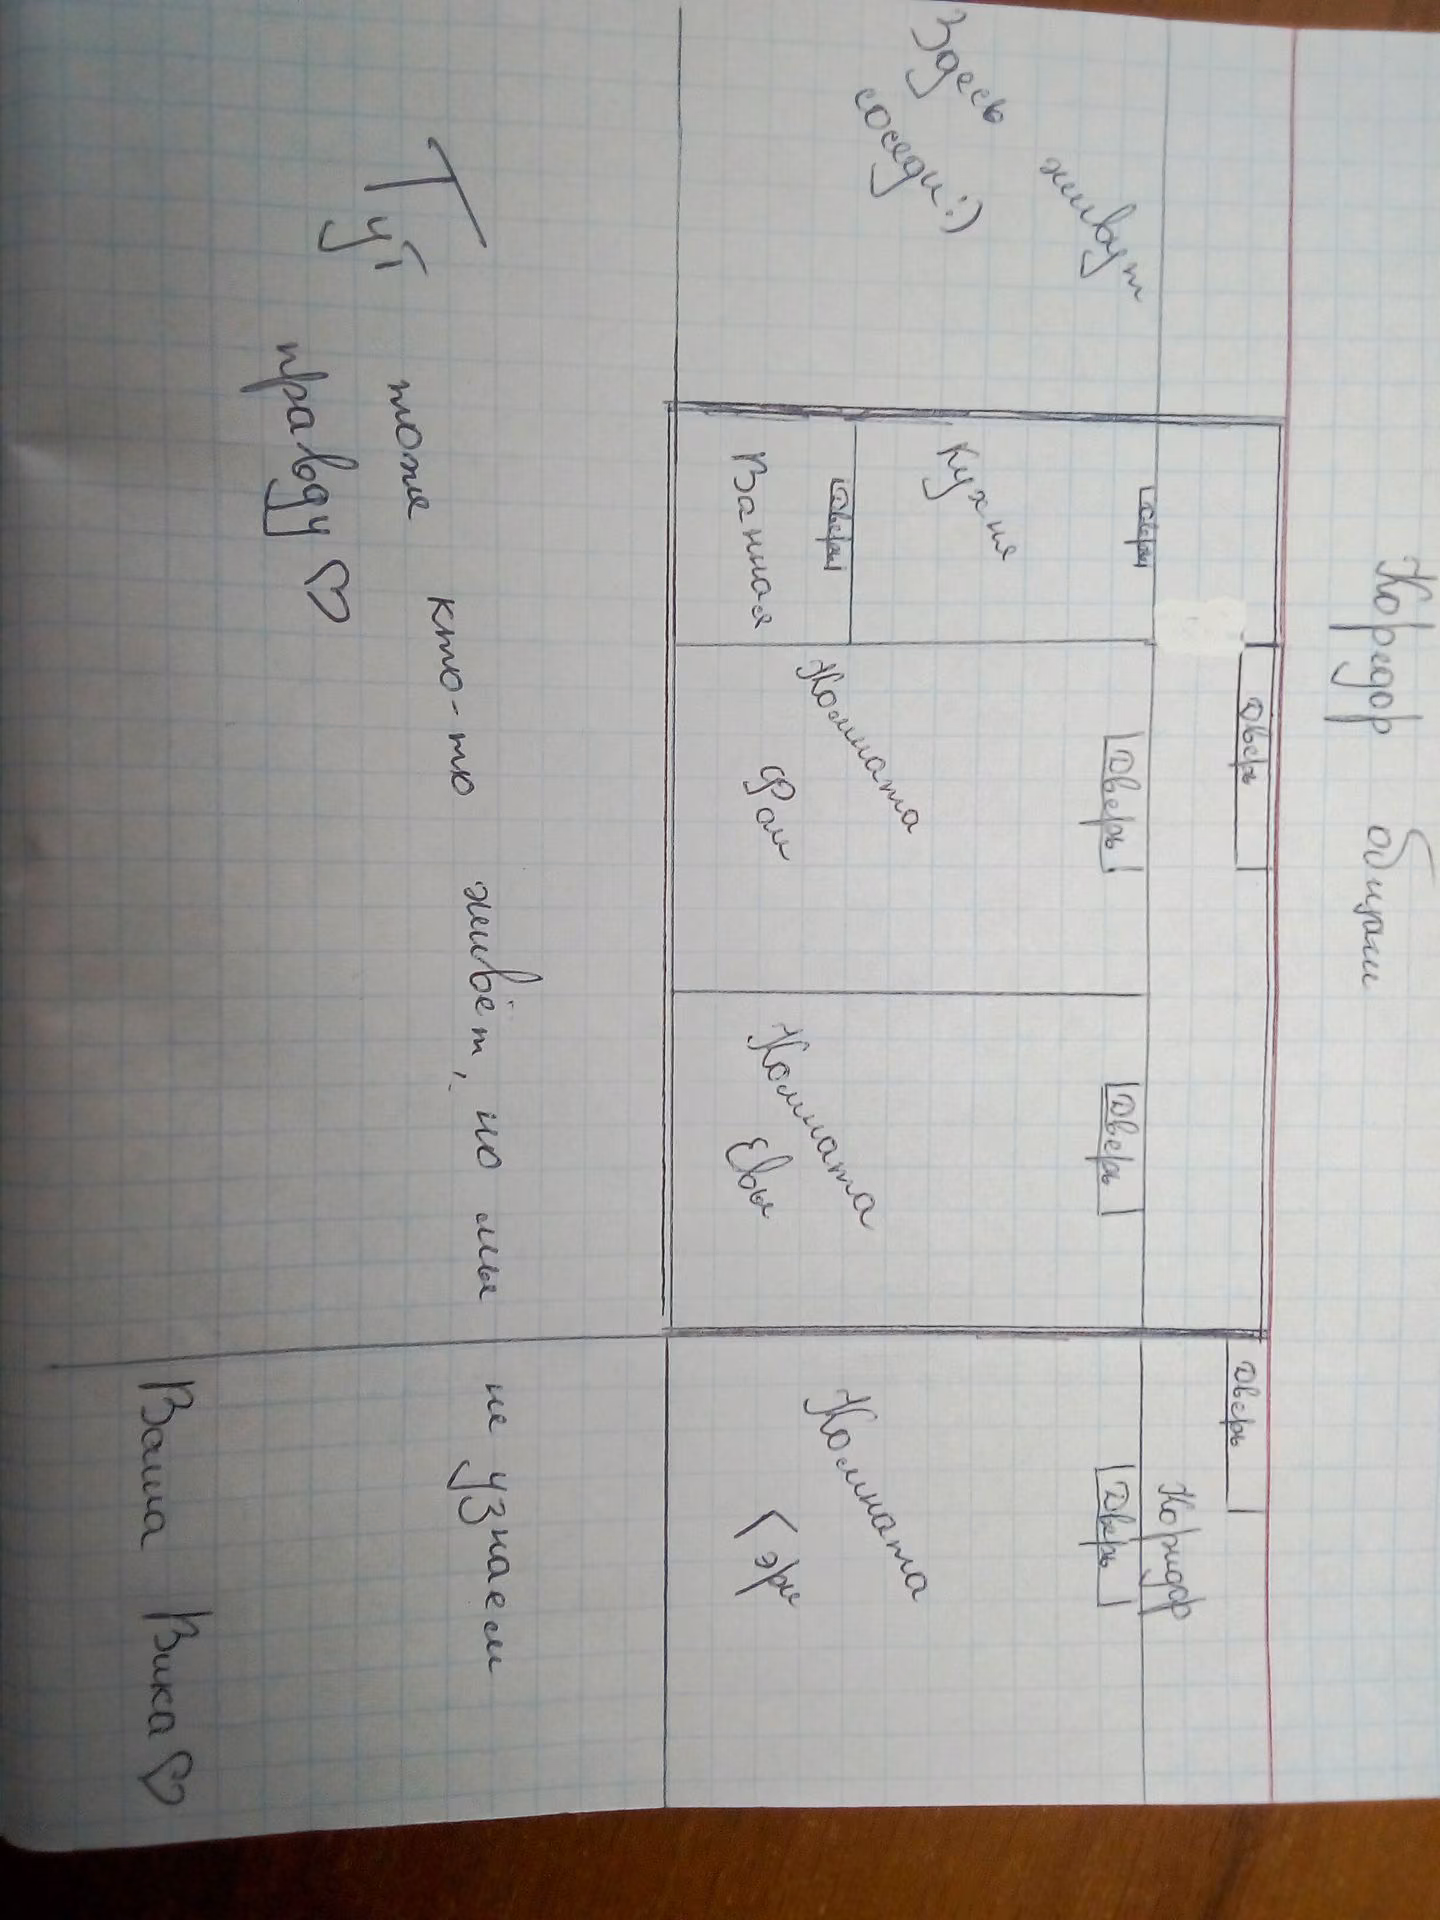 Коридор общий
Здесь живут
соседи:)
Дверь
Дверь
Коридор
Дверь
Дверь
Дверь
Дверь
Кухня
Дверь
Ванная
Комната
Фани
Комната
Евы
Комната
Гэри
Тут тоже кто-то живёт, но мы не узнаем
правду ♡
Ваша Вика ♡